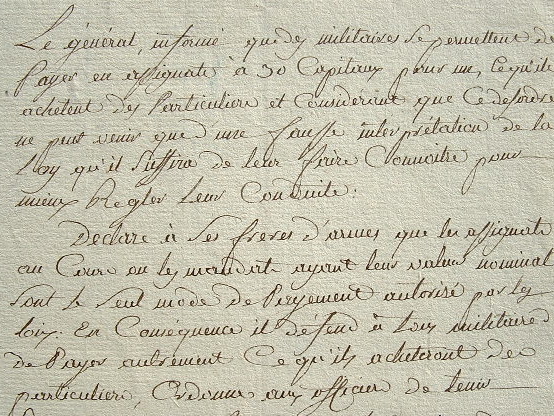 Le général, informé que des militaires se permettent de
Payer en assignats à 30 Capitaux pour un, ce qu'ils
achetent des Particuliers et Considerant que Ce desordre
ne peut venir que d'une fausse interprétation de la
Loy qu'il Suffira de leur faire Connoitre pour
mieux Regler Leur Conduite.
Declare à Ses freres d'armes que les assignats
au Cours ou les mandats ayant leur valeur nominal
sont le seul mode de Payement autorisé par les
loix. En Conséquence il défend à tous militaires
de Payer autrement Ce qu'ils acheteront des
particuliers, Ordonne aux officiers de tenir